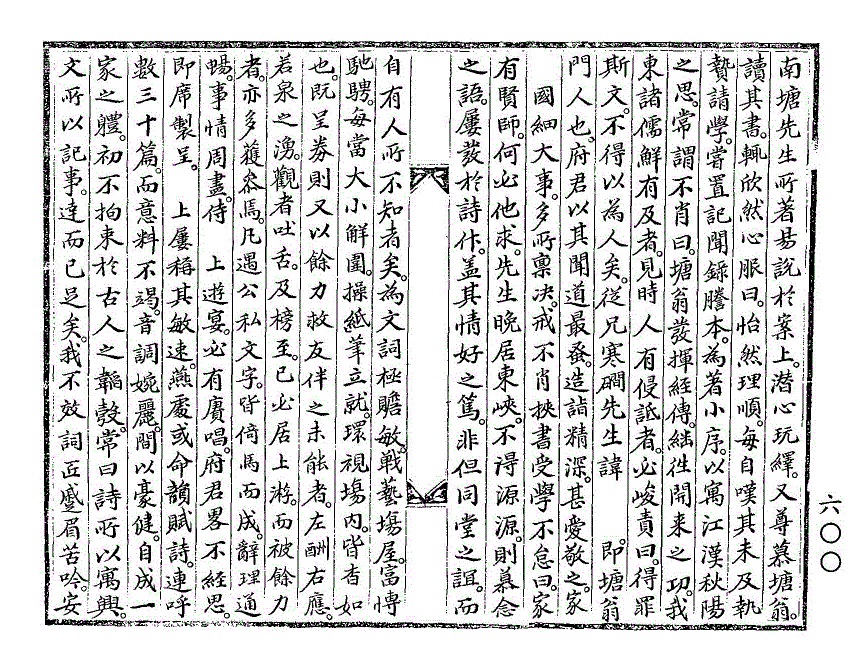 南塘先生所著易說於案上。潛心玩繹。又尊慕塘翁。
讀其書。輒欣然心服曰。怡然理順。每自嘆其未及執
贄請學。嘗置記聞錄謄本。為著小序。以寓江漢秋陽
之思。常謂不肖曰。塘翁發揮經傳。繼徃開来之功。我
東諸儒鮮有及者。見時人有侵詆者。必峻責曰。得罪
斯文。不得以為人矣。從兄寒磵先生諱　即塘翁
門人也。府君以其聞道最蚤。造詣精深。甚愛敬之。家
國細大事。多所稟决。戒不肖挾書受學不怠曰。家
有賢師。何必他求。先生晚居東峽。不得源源。則慕念
之語。屢發於詩作。盖其情好之篤。非但同堂之誼。而
自有人所不知者矣。為文詞極贍敏。戰藝場屋。富博
馳騁。每當大小解圍。操紙筆立就。環視場內。皆杳如
也。既呈券則又以餘力救友伴之未能者。左酬右應。
若泉之湧。觀者吐舌。及榜至。已必居上游。而被餘力
者。亦多獲叅焉。凡遇公私文字。皆倚馬而成。辭理通
暢。事情周盡。侍　上遊宴。必有賡唱。府君畧不經思。
即席製呈。　上屢稱其敏速。燕處或命韻賦詩。連呼
數三十篇。而意料不竭。音調婉麗。間以豪健。自成一
家之軆。初不拘束於古人之韜彀。常曰詩所以寓興。
文所以記事。達而已足矣。我不效詞匠蹙眉苦唫。安
六〇〇